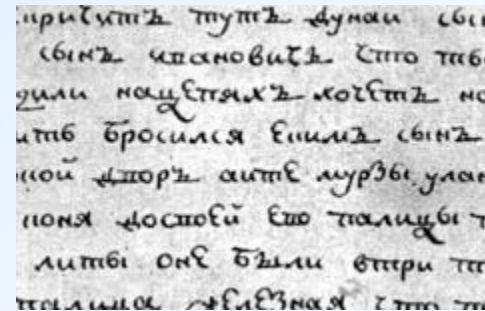 кричитъ тутъ дунаи сы
сынъ ивановичъ что тво
дили нацепяхъ хочетъ но
ить бросился екимъ сынъ
кой дворъ аите мурзы улан
коня доспей ево палицы
литы оне были втри
палица железная что